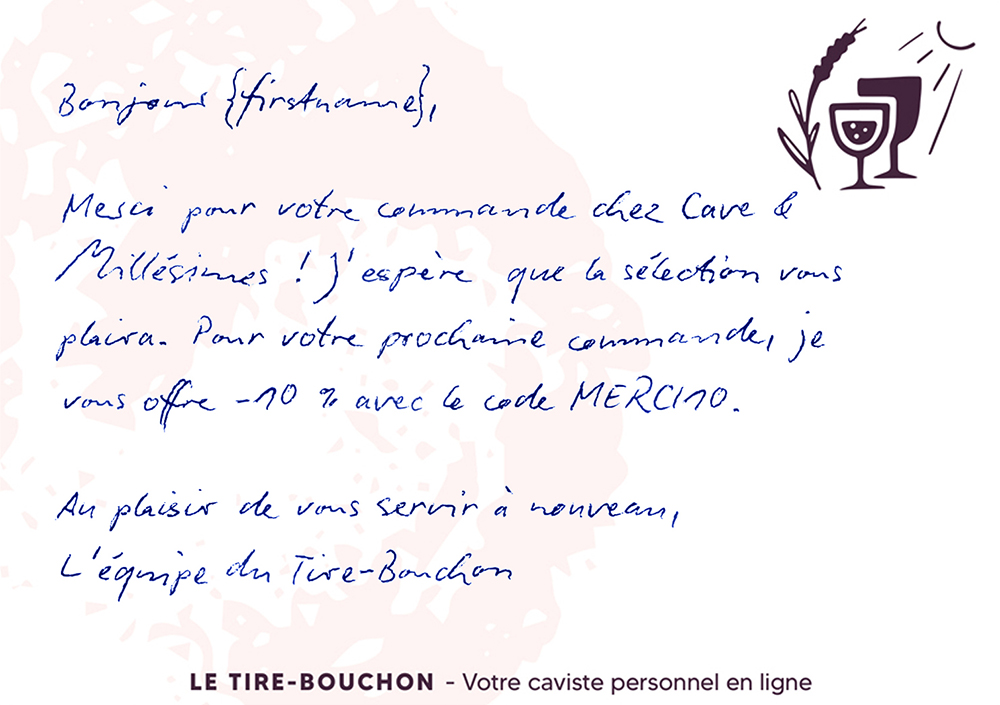 Bonjour {firstname},
Merci pour votre commande chez Cave &
Millésimes ! J'espère que la sélection vous
plaira. Pour votre prochaine commande, je
vous offre -10 % avec le code MERCI10.
Au plaisir de vous servir à nouveau,
L'équipe du Tire-Bouchon
LE TIRE-BOUCHON - Votre caviste personnel en ligne